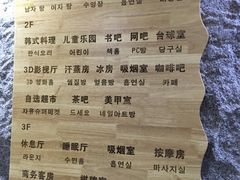 남자 탕 여자 탕 수영장 흡연실
2F
韩式料理 儿童乐园 书吧 网吧 台球室
한식요리 어린이 책롬 PC방 당구실
3D影视厅 汗蒸房 冰房 吸烟室 咖啡吧
3D 영화홀 찜질방 얼음방 흡연실 카페
自选超市 茶吧 美甲室
자유슈퍼마켓 드세요 네일아트방
3F
休息厅 睡眠厅 吸烟室 按摩房
라운지 수면홀 흡연실 마사지실
商务客房